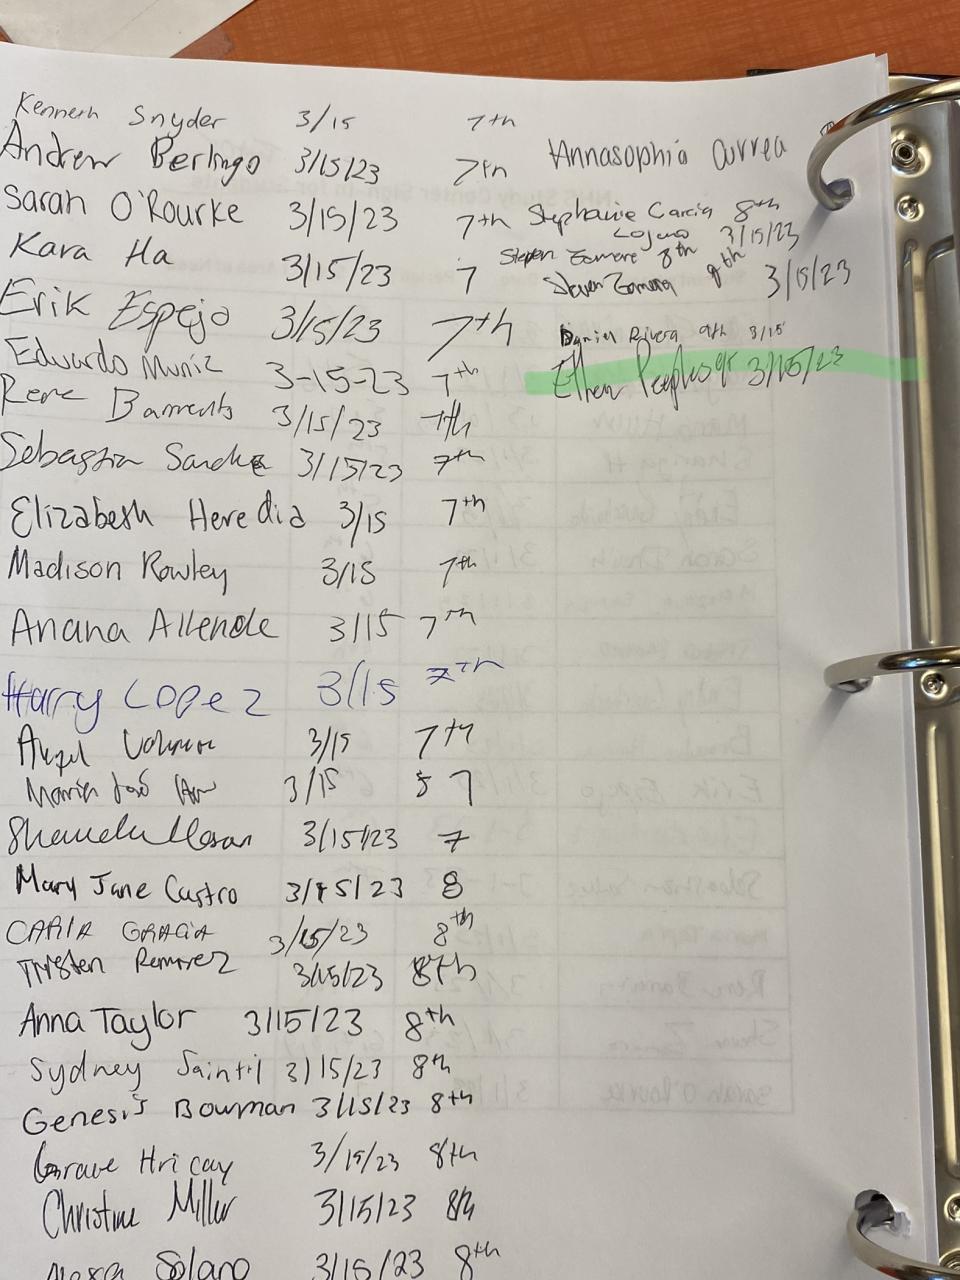 Kenneth Snyder 3/15 7th
Andrew Berlingo 3/15/23 7th
Sarah O'Rourke 3/15/23 7th
Kara Ha 3/15/23 7
Erik Espejo 3/15/23 7th
Eduardo Muniz 3-15-23 7th
Rene 3/15/23 7th
Sebastian 3/15/23 7th
Elizabeth Heredia 3/15 7th
Madison Rowley 3/15 7th
Anana Allende 3/15 7th
Harry Lopez 3/15 7th
Angel 3/15 7th
Maria José 3/15 7
3/15/23 7
Mary Jane Castro 3/15/23 8
CARLA GRACIA 3/15/23 8th
Tristen Ramirez 3/15/23 8th
Anna Taylor 3/15/23 8th
Sydney Saintil 3/15/23 8th
Genesis Bowman 3/15/23 8th
Hricay 3/15/23 8th
Christine Miller 3/15/23 8th
Solano 3/15/23 8th
Annasophia Currea
Stephanie Garcia 8th
3/15/23
8th
Steven Zamora 8th 3/15/23
Daniel Rivera 9th 3/15
Ethan Peeples 3/15/23